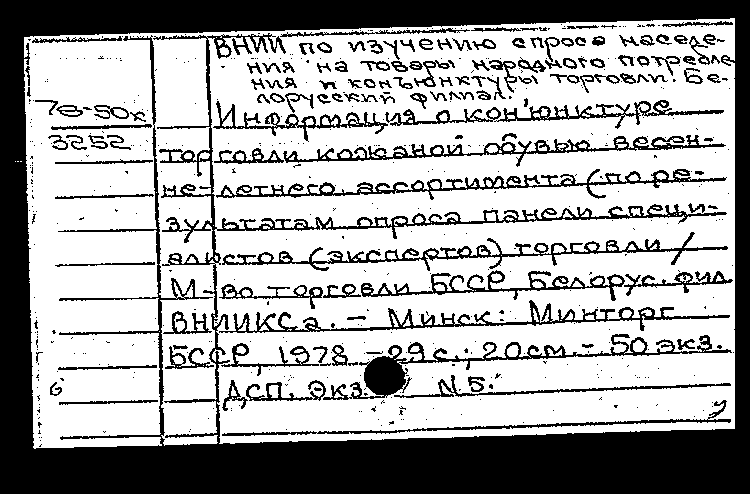 ВНИИ по изучению спроса населе-
ния на товары народного потребле
ния и конъюнктуры торговли. Бе-
лорусский филиал.
78-50к
Информация о кон'юнктуре
3252
торговли кожаной обувью весен-
не-летнего ассортимента (по ре-
зультатам опроса панели специ-
алистов (экспертов) торговли /
М-во торговли БССР, Белорус. фил
ВНИИКСа. - Минск: Минторг
БССР, 1978 - 29 с.; 20 см. - 50 экз.
6
ДСП. Экз. N 5.
у